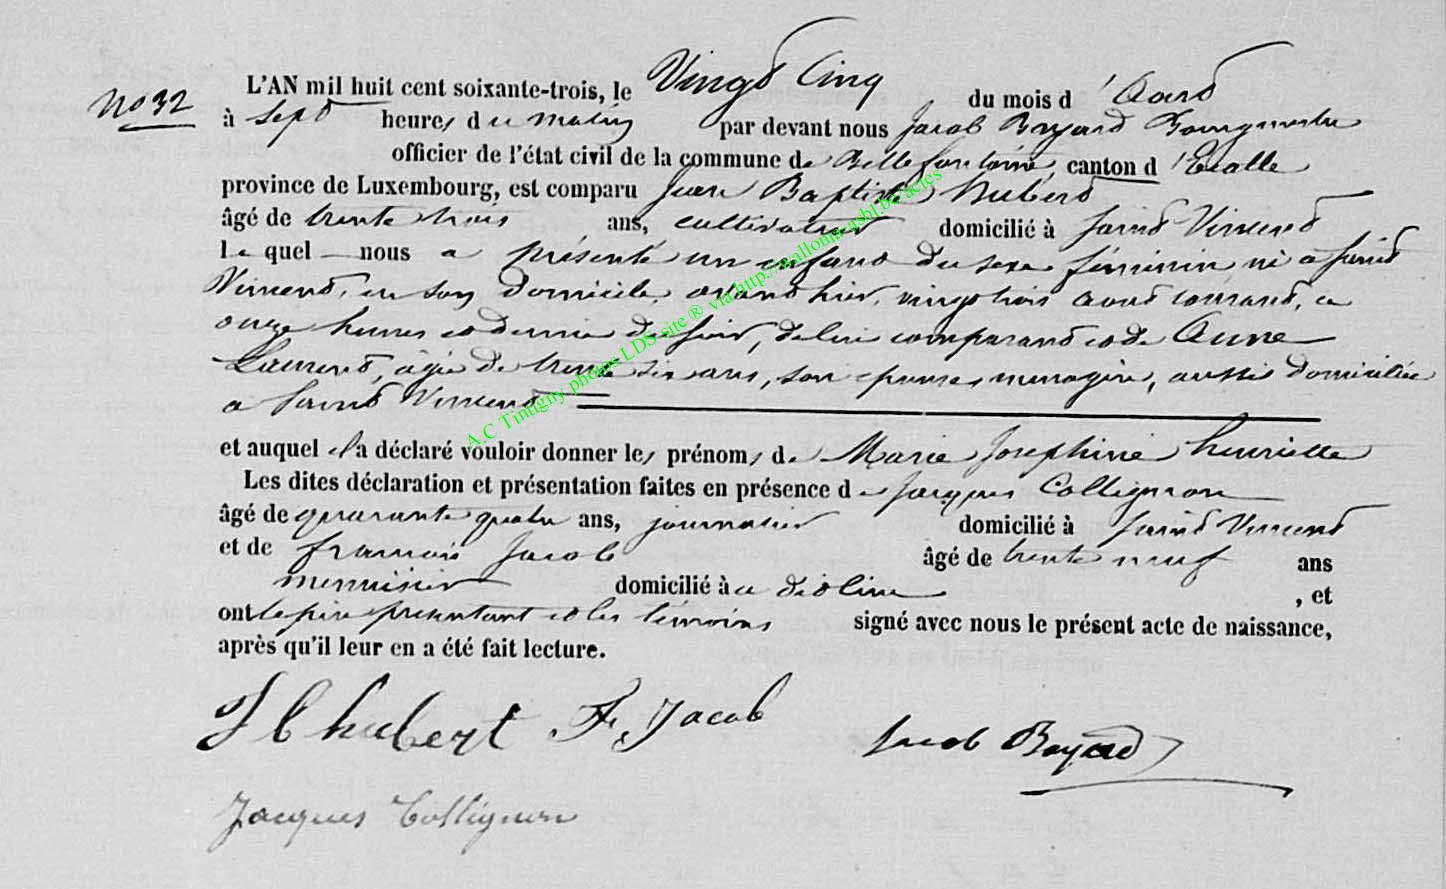 L'AN mil huit cent soixante-trois, le Vingt Cinq du mois d 'Aout
No 32
à sept heures du matin par devant nous Jacob Bayard Bourgmestre
officier de l'état civil de la commune de Bellefontaine, canton d 'Etalle
province de Luxembourg, est comparu Jean Baptiste Hubert
âgé de trente trois ans, cultivateur domicilié à Saint Vincent
lequel nous a présenté un enfant du sexe féminin né a Saint
Vincent, en son domicile, avant hier, vingt trois aout courant, a
onze heures et demie du soir, de lui comparant et de Anne
Laurent, agée de trente six ans, son epouse menagère, aussi domiciliée
a Saint Vincent
et auquel il a déclaré vouloir donner les prénoms de Marie Josephine Henriette
Les dites déclaration et présentation faites en présence de Jacques Collignon
âgé de quarante quatre ans, journalier domicilié à Saint Vincent
et de francois Jacob âgé de trente neuf ans
menuisier domicilié à , et
ont le père presentant et les témoins signé avec nous le présent acte de naissance,
après qu'il leur en a été fait lecture.
J B hubert Fr. Jacob Jacob Bayard
Jacques Collignon
A.C Tintigny photos LDS site ® via http://wallonia-asbl.be/actes